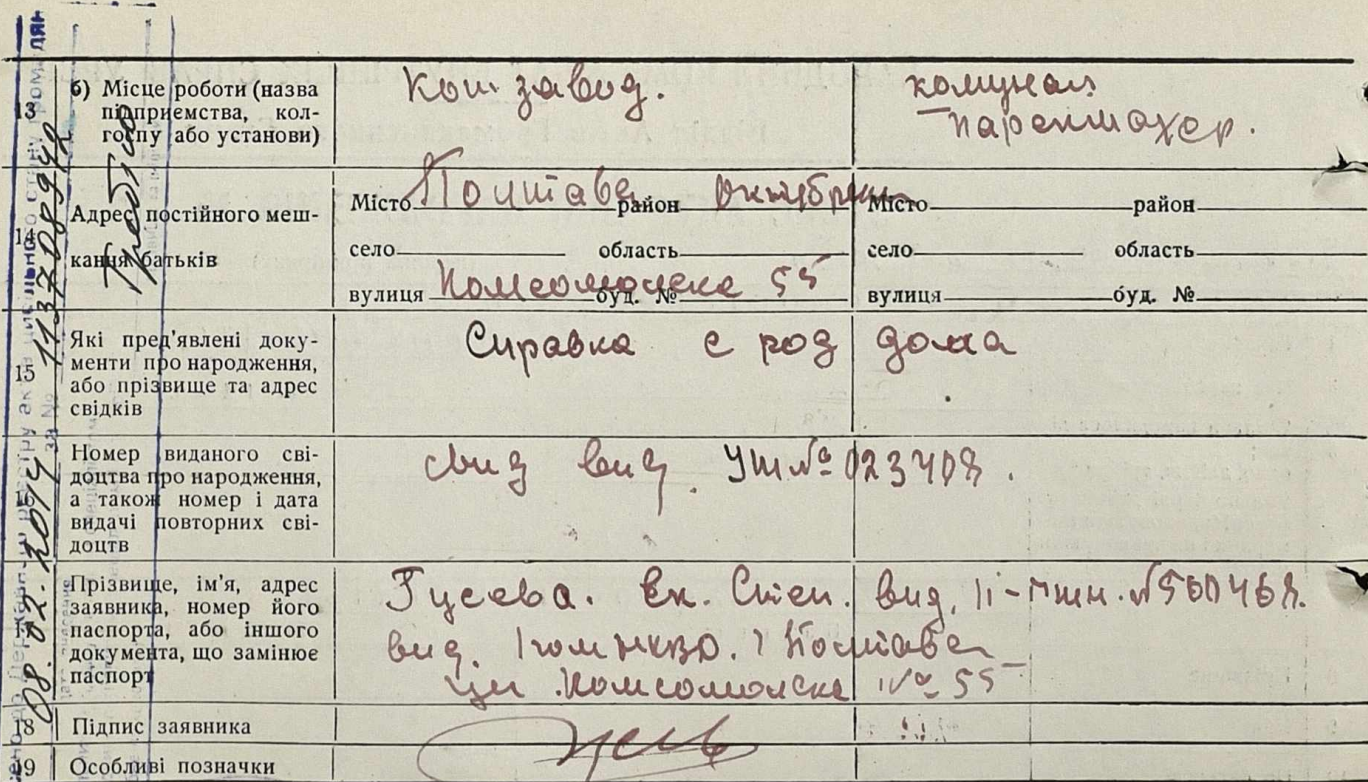 13 б) Місце роботи (назва підприємства, колгоспу або установи)
Кон. завод.
комунал парикмахер.
14 Адрес постійного мешкання батьків
Місто Полтава район Октябрьск
село область
вулиця Комсомольска буд. № 55
Місто район
село область
вулиця буд. №
15 Які пред'явлені документи про народження, або прізвище та адрес свідків
Справка с род дома
16 Номер виданого свідоцтва про народження, а також номер і дата видачі повторних свідоцтв
вид. № 023408.
17 Прізвище, ім'я, адрес заявника, номер його паспорта, або іншого документа, що замінює паспорт
Гусева. Ек. Степ. вид. № 560468.
вид. Полтава
Комсомольска № 55
18 Підпис заявника
19 Особливі позначки
08.02.2014 за № 113708942